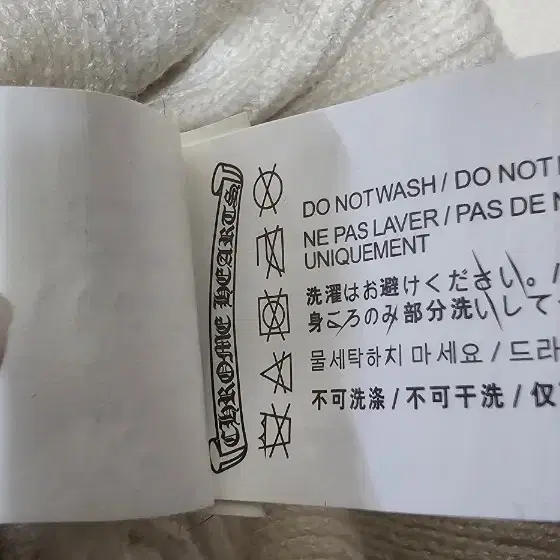 CHROME HEARTS
DO NOT WASH / DO NOT
NE PAS LAVER / PAS DE
UNIQUEMENT
洗濯はお避けください。/
身ごろのみ部分洗いして
물세탁하지 마세요 / 드라
不可洗涤 / 不可干洗 / 仅